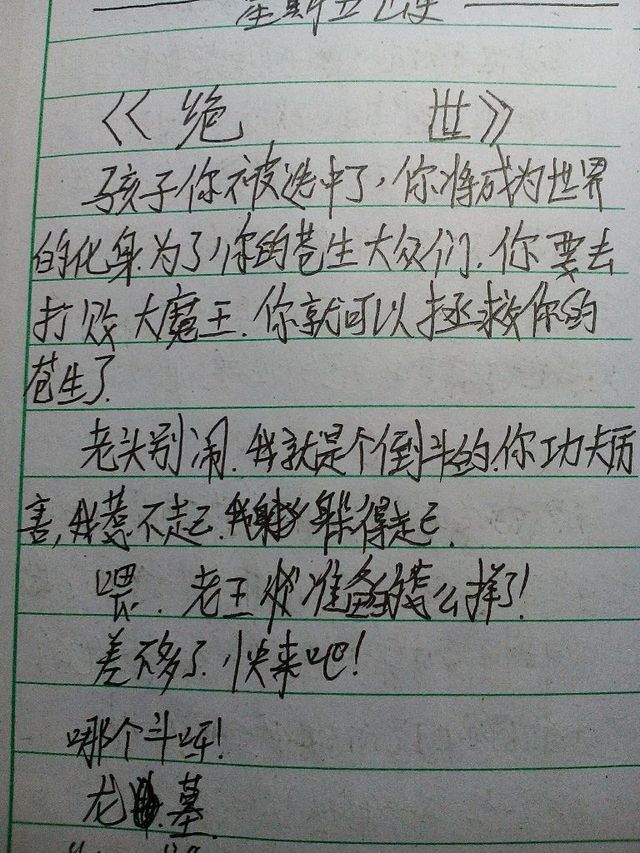 《绝 世》
孩子你被选中了,你将成为世界
的化身.为了你的苍生大众们.你要去
打败大魔王.你就可以拯救你的
苍生了.
老头别闹.我就是个倒斗的.你功夫厉
害,我惹不起.我躲得起.
喂.老王准备的怎么样了!
差不多了.快来吧!
哪个斗呀!
龙墓.